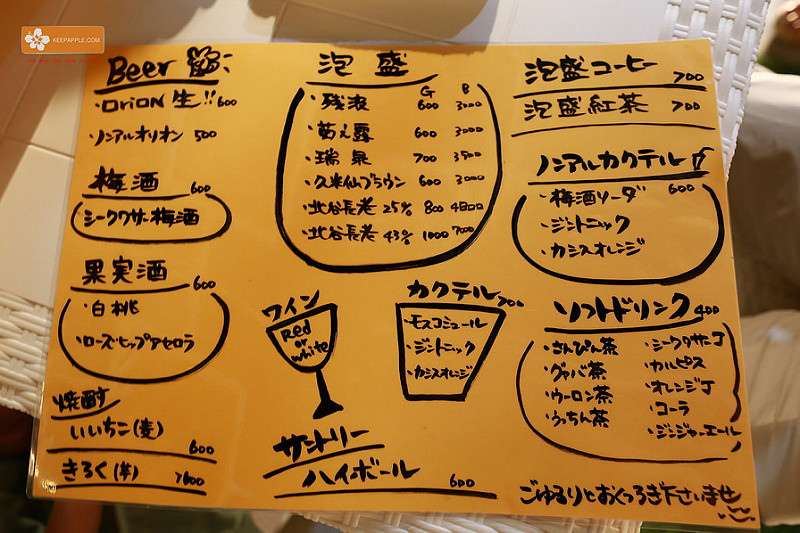 KEEPAPPLE.COM
Beer
・ORION 生!! 600
・ノンアルオリオン 500
梅酒 600
シークワサー梅酒
果実酒 600
・白桃
・ローズヒップアセロラ
焼酎
いいちこ(麦) 600
きろく(芋)
泡盛
G B
・残波 600 3000
・菊之露 600 3000
・瑞泉 700 3500
・久米仙ブラウン 600 3000
・北谷長老 25% 800
・北谷長老 43% 1000 7000
ワイン
Red or white
カクテル 700
・モスコミュール
・ジントニック
・カシスオレンジ
サントリー
ハイボール 600
泡盛コーヒー 700
泡盛紅茶 700
ノンアルカクテル 600
・梅酒ソーダ
・ジントニック
・カシスオレンジ
ソフトドリンク 400
・さんぴん茶
・グァバ茶
・ウーロン茶
・うっちん茶
・シークワサーJ
・カルピス
・オレンジJ
・コーラ
・ジンジャーエール
ごゆるりとおくつろぎ下さいませ